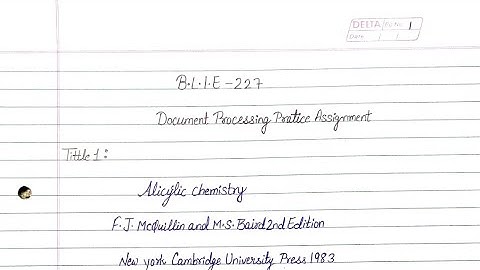 DELTA Pg No. 1
Date / /
B.L.I.E-227
Document Processing Pratice Assignment
Tittle 1:
Alicylic chemistry
F.J. McQuillin and M.S. Baird 2nd Edition
New york Cambridge University Press 1983